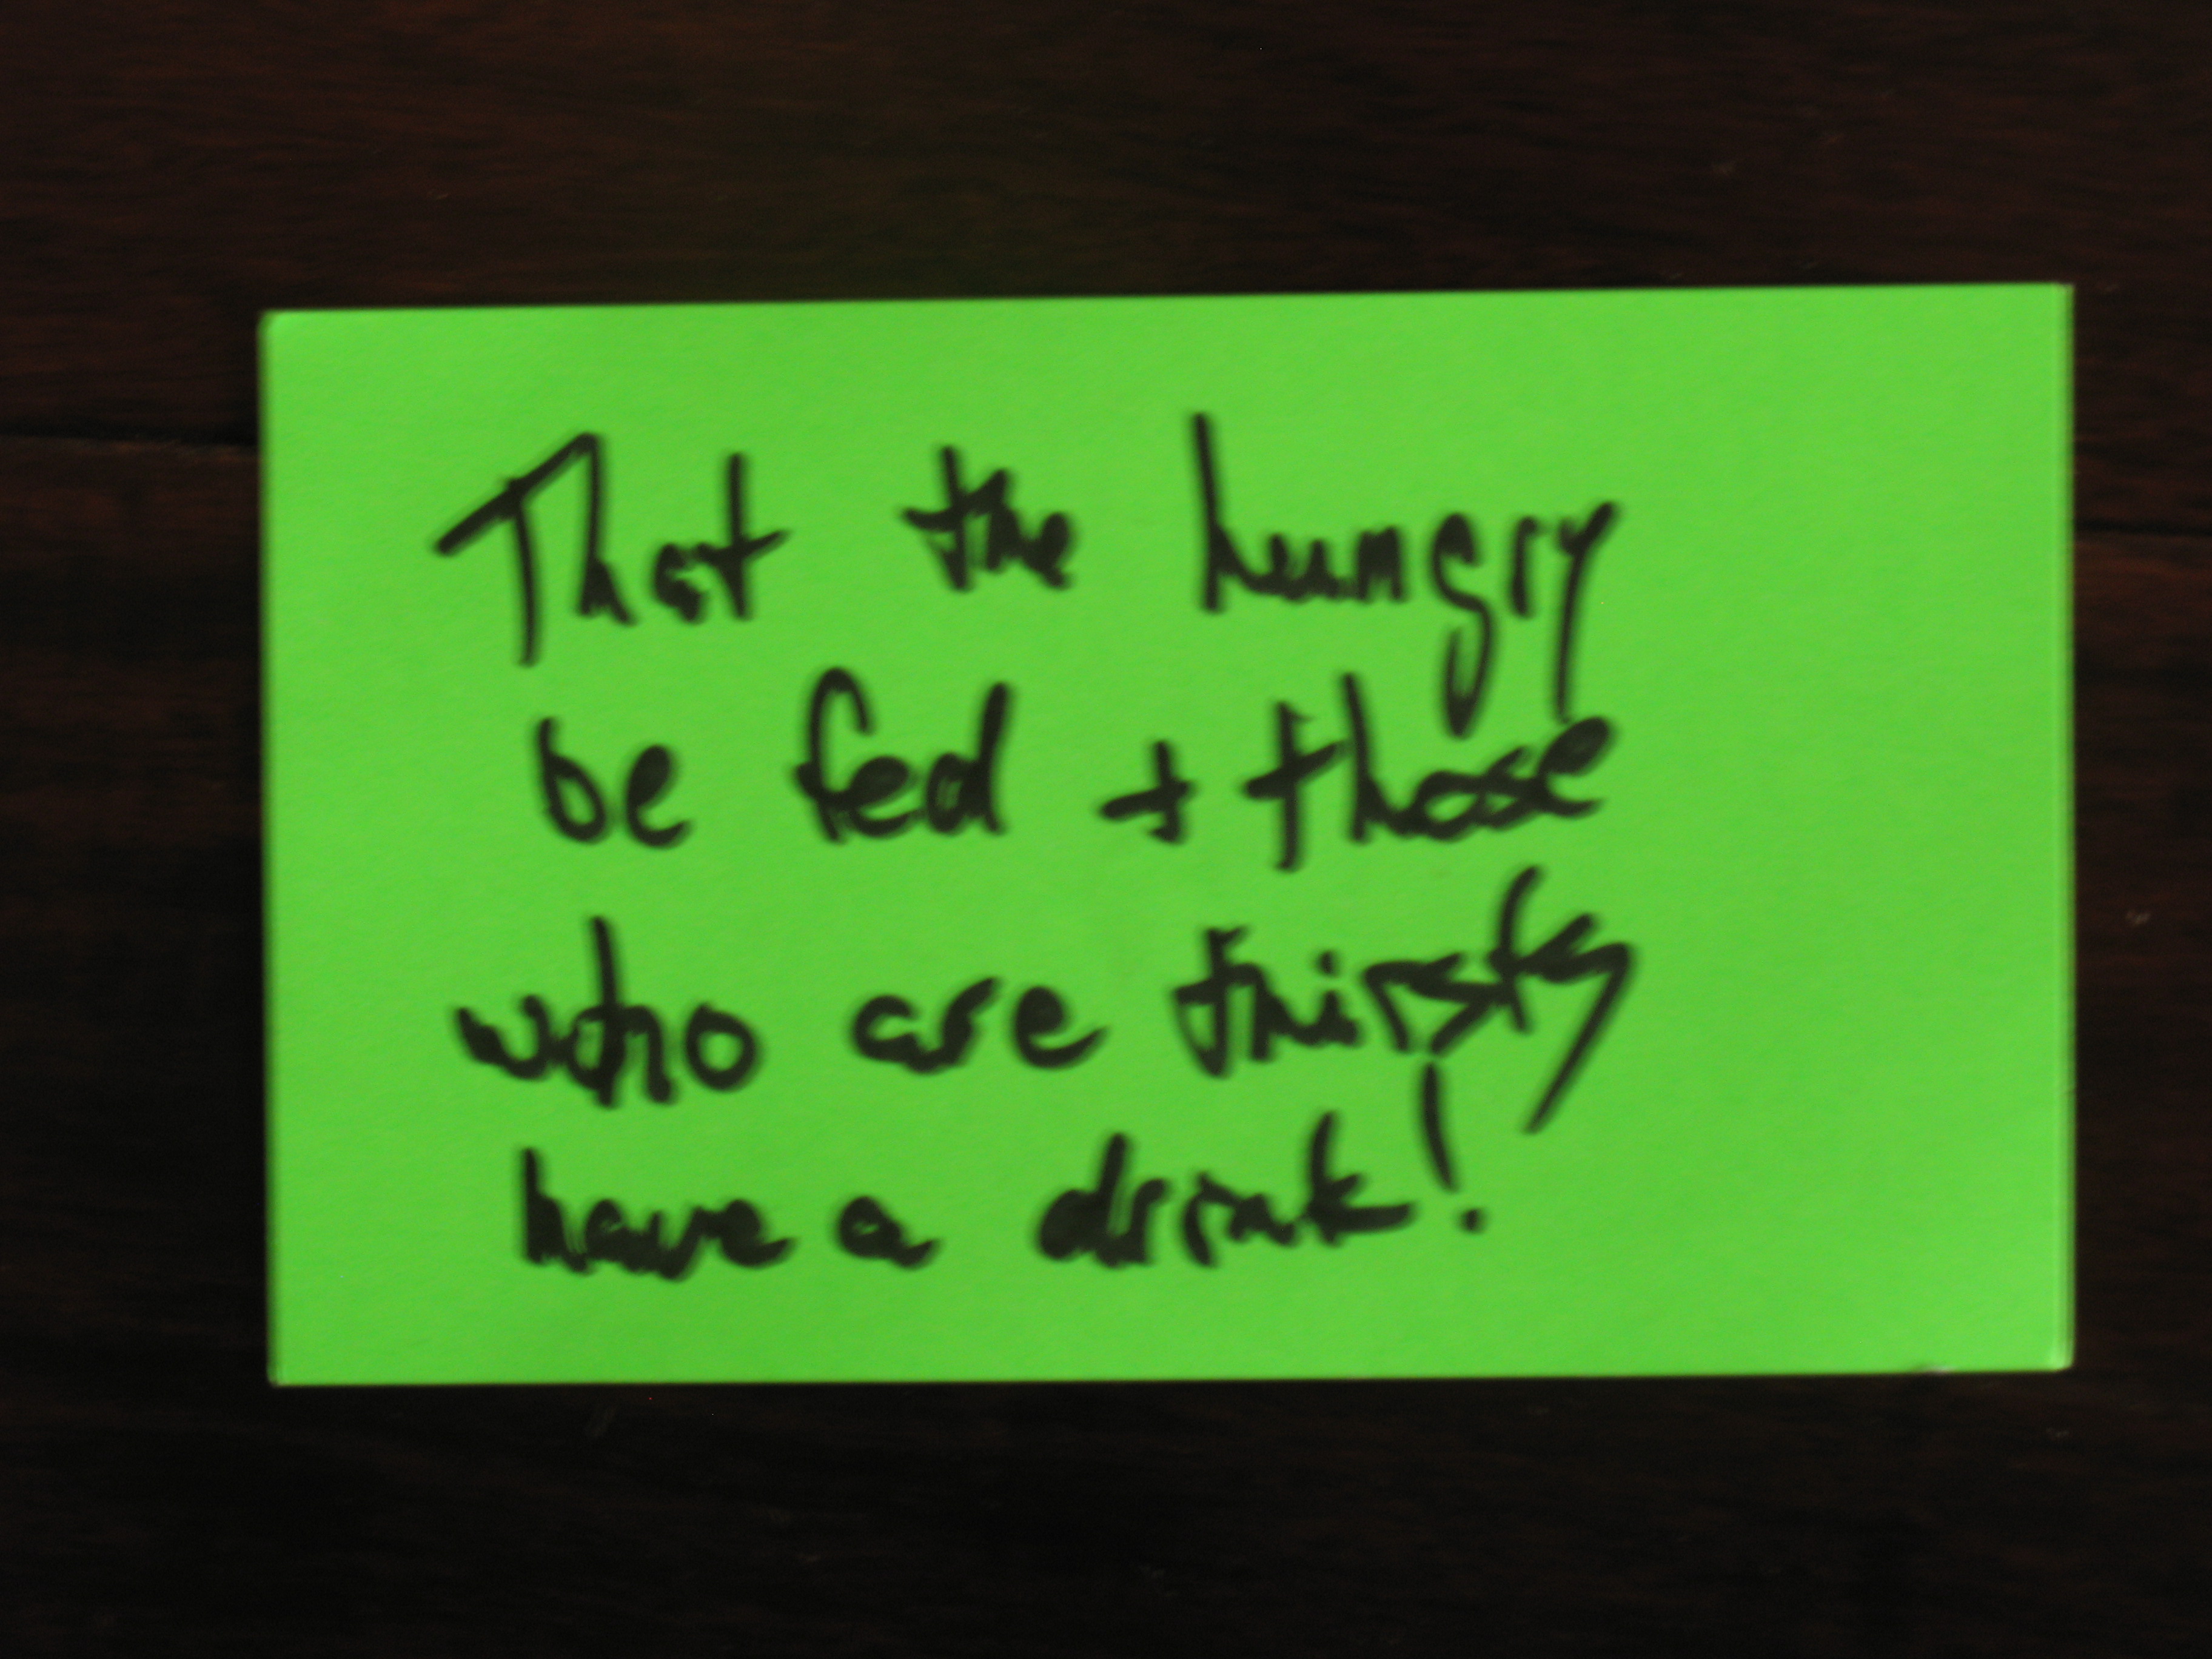 That the hungry
be fed + those
who are thirsty
have a drink!